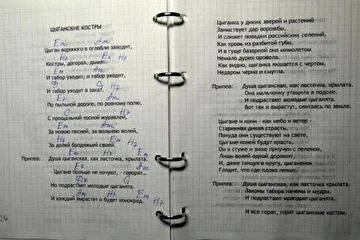 ЦЫГАНСКИЕ КОСТРЫ
Em Am
Цыган вороного в оглобли заводит,
H7 Em
Костры, догорая, дымят.
E Am
И табор уходит, и табор уходит,
G
И табор уходит в закат.
Em Am
По пыльной дороге, по ровному полю,
C H7
С прощальной тоской журавлей,
Em Am
За новою песней, за вольною волей,
H7 Em H7
За долей бродяжьей своей.
Em Am
Припев: Душа цыганская, как ласточка, крылата.
Em
- Цыгане больше не кочуют, - говорят...
G
Но подрастают молодые цыганята.
Am H7 Em H7
И каждый вырастет и будет конокрад.
Цыганка у диких зверей и растений
Заимствует дар ворожбы,
И слижет повадки российских селений,
Как кровь из разбитой губы,
И в гуще базарной она мимолетом
Немало дурех провела.
Как видно, цыганка якшается с чертом,
Недаром черна и смугла.
Припев: Душа цыганская, как ласточка, крылата.
Она мальчонку утащила в подоле.
И подрастают молодые цыганята.
Вот так и вырастут, скитаясь по земле.
Цыгане и кони - как небо и ветер
Старинная дикая страсть.
Покуда они существуют на свете,
Цыгане коней будут красть.
Он к стуже и зною приучен с пеленок,
Лишь волей одной дорожит,
И, даже танцуя в кругу, цыганенок
Глядит, что где плохо лежит.
Припев: Душа цыганская, как ласточка, крылата,
Законы табора наивны и мудры.
И подрастают молодые цыганята.
И все горят, горят цыганские костры.